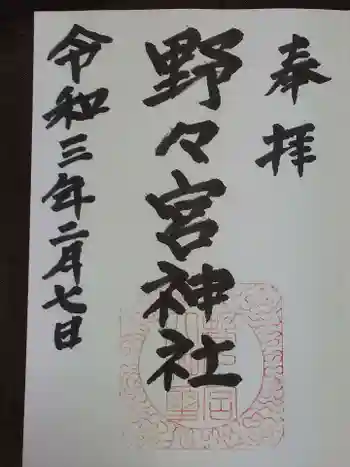 奉拝
野々宮神社
令和三年二月七日